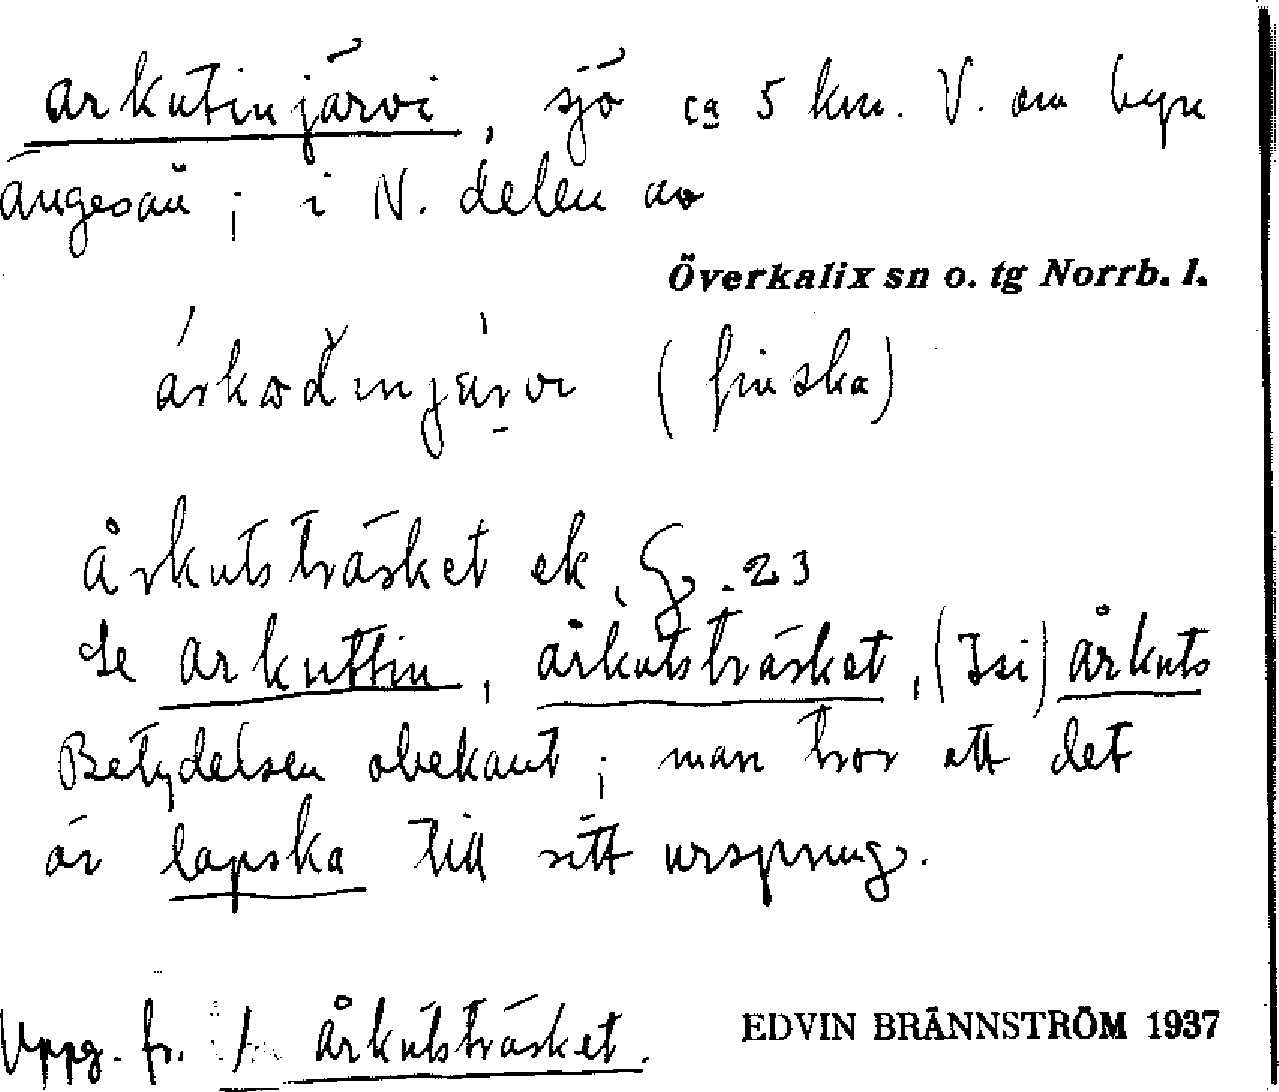 arkutinjärvi, sjö ca 5 km. V. om byn
ängesån; i N. delen av
Överkalix sn o. tg Norrb. l.
(finska)
Årkutsträsket ek. . 23
Se arkuttin, årkutsträsket, (Isi) årkuts
Betydelsen obekant; man tror att det
är lapska till sitt ursprung.
Uppg. fr. årkutsträsket.
EDVIN BRÄNNSTRÖM 1937